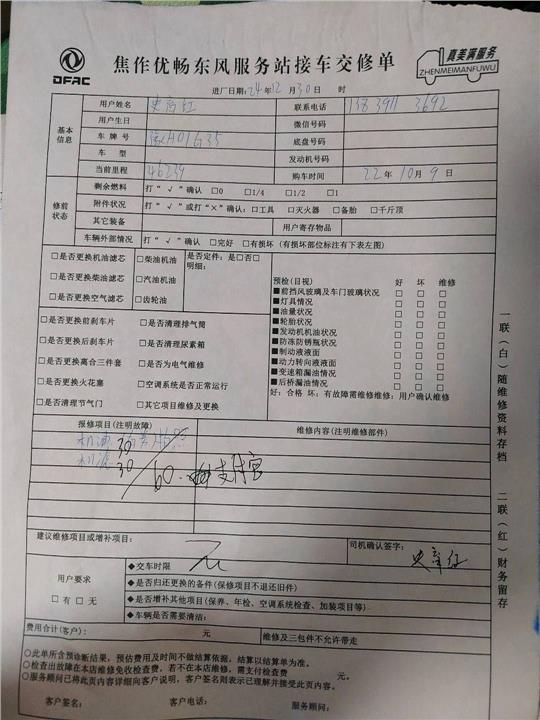 DFAC
焦作优畅东风服务站接车交修单
真美满服务
ZHENMEIMANFUWU
进厂日期:24年12月30日 时
基本信息
用户姓名 联系电话
用户生日 微信号码
车牌号 豫H01G35 底盘号码
车型 发动机号码
当前里程 46239 购车时间 22年10月9日
修前状态
剩余燃料 打“√”确认 □0 □1/4 □1/2 □1
附件状况 打“√”或打“×”确认:□工具 □灭火器 □备胎 □千斤顶
其它装备 用户寄存物品
车辆外部情况 打“√”确认 □完好 □有损坏(有损坏部位标注有下表左图)
□是否更换机油滤芯 □柴油机油 是否定件:是□否□
□是否更换柴油滤芯 □汽油机油 明细:
□是否更换空气滤芯 □齿轮油
□是否更换前刹车片 □是否清理排气筒
□是否更换后刹车片 □是否清理尿素箱
□是否更换离合三件套 □是否为电气维修
□是否更换火花塞 □空调系统是否正常运行
□是否清理节气门 □其它项目维修及更换
预检(目视) 好 坏 维修
■前挡风玻璃及车门玻璃状况 □ □ □
■灯具情况 □ □ □
■油量状况 □ □ □
■轮胎状况 □ □ □
■发动机机油状况 □ □ □
■防冻防锈瓶状况 □ □ □
■制动液液面 □ □ □
■动力转向液液面 □ □ □
■变速箱漏油情况 □ □ □
■后桥漏油情况 □ □ □
好:合格 坏:有故障需维修维修:用户确认维修
报修项目(注明故障) 维修内容(注明维修部件)
机油 30
机滤 30
60.
建议维修项目或增补项目: 无 司机确认签字:
用户要求
□有□无
◆交车时限
◆是否归还更换的备件(保修项目不退还旧件)
◆是否增补其他项目(保养、年检、空调系统检查、加装项目等)
◆车辆是否需要清洁:
费用合计(客户): 元 维修及三包件不允许带走
○此单所含预诊断结果,预估费用及时间不做结算依据,结算以结算单为准。
○检查出故障在本店维修免收检查费,若不在本店维修,需支付检查费 元。
○服务顾问已将此页内容详细向客户说明,客户签名则表示已理解并接受此页内容。
客户签名: 客户电话: 服务顾问:
一联(白)随维修资料存档 二联(红)财务留存